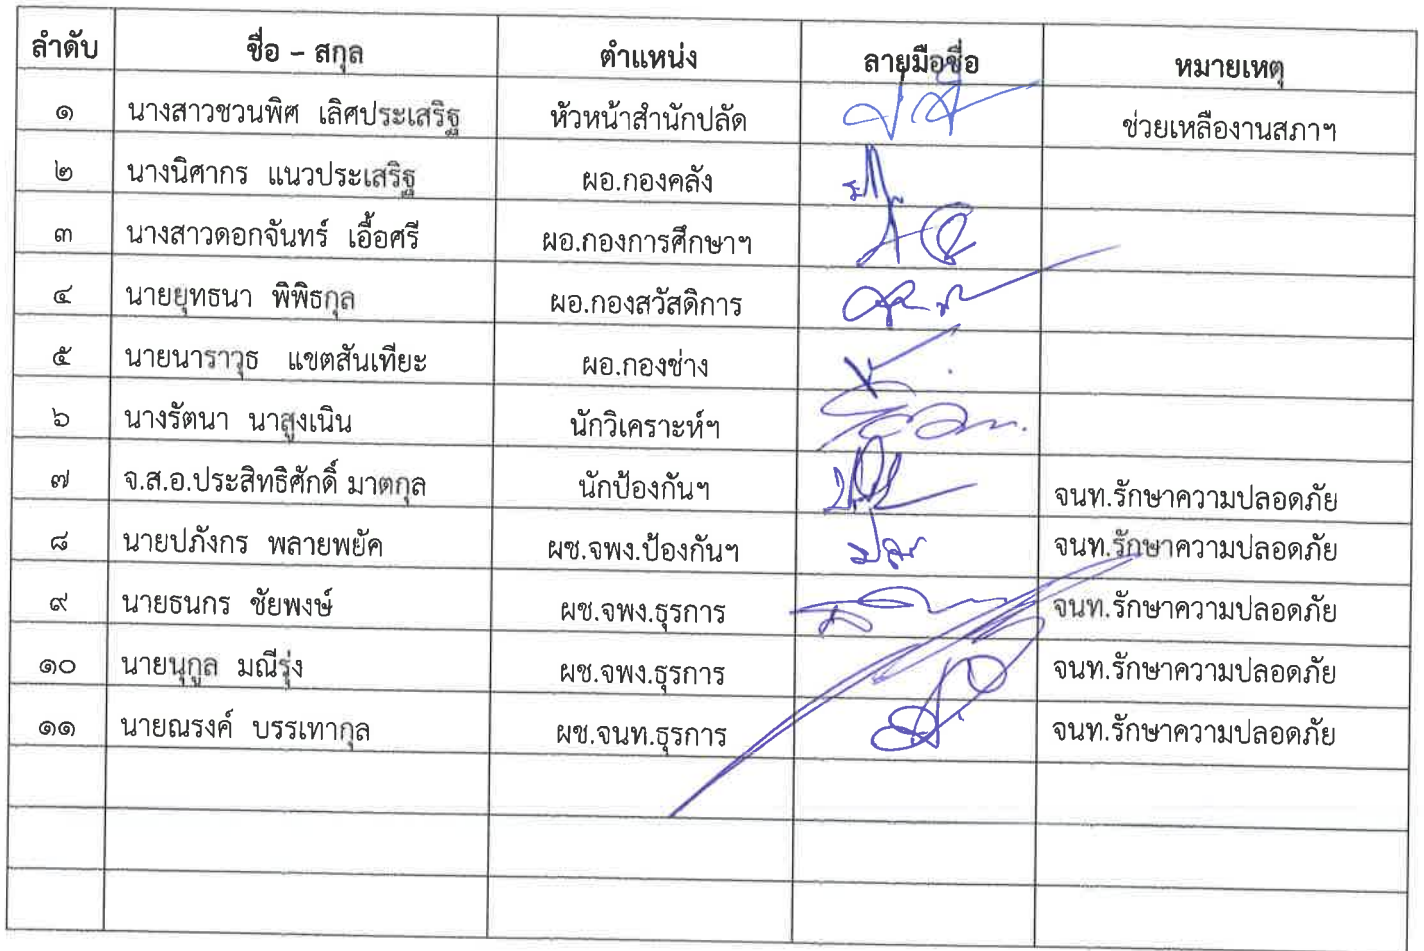 ลำดับ ชื่อ – สกุล ตำแหน่ง ลายมือชื่อ หมายเหตุ
๑ นางสาวชวนพิศ เลิศประเสริฐ หัวหน้าสำนักปลัด ช่วยเหลืองานสภาฯ
๒ นางนิศากร แนวประเสริฐ ผอ.กองคลัง
๓ นางสาวดอกจันทร์ เอื้อศรี ผอ.กองการศึกษาฯ
๔ นายยุทธนา พิพิธกุล ผอ.กองสวัสดิการ
๕ นายนาราวุธ แขตสันเทียะ ผอ.กองช่าง
๖ นางรัตนา นาสูงเนิน นักวิเคราะห์ฯ
๗ จ.ส.อ.ประสิทธิศักดิ์ มาตกุล นักป้องกันฯ จนท.รักษาความปลอดภัย
๘ นายปภังกร พลายพยัค ผช.จพง.ป้องกันฯ จนท.รักษาความปลอดภัย
๙ นายธนกร ชัยพงษ์ ผช.จพง.ธุรการ จนท.รักษาความปลอดภัย
๑๐ นายนุกูล มณีรุ่ง ผช.จพง.ธุรการ จนท.รักษาความปลอดภัย
๑๑ นายณรงค์ บรรเทากุล ผช.จนท.ธุรการ จนท.รักษาความปลอดภัย